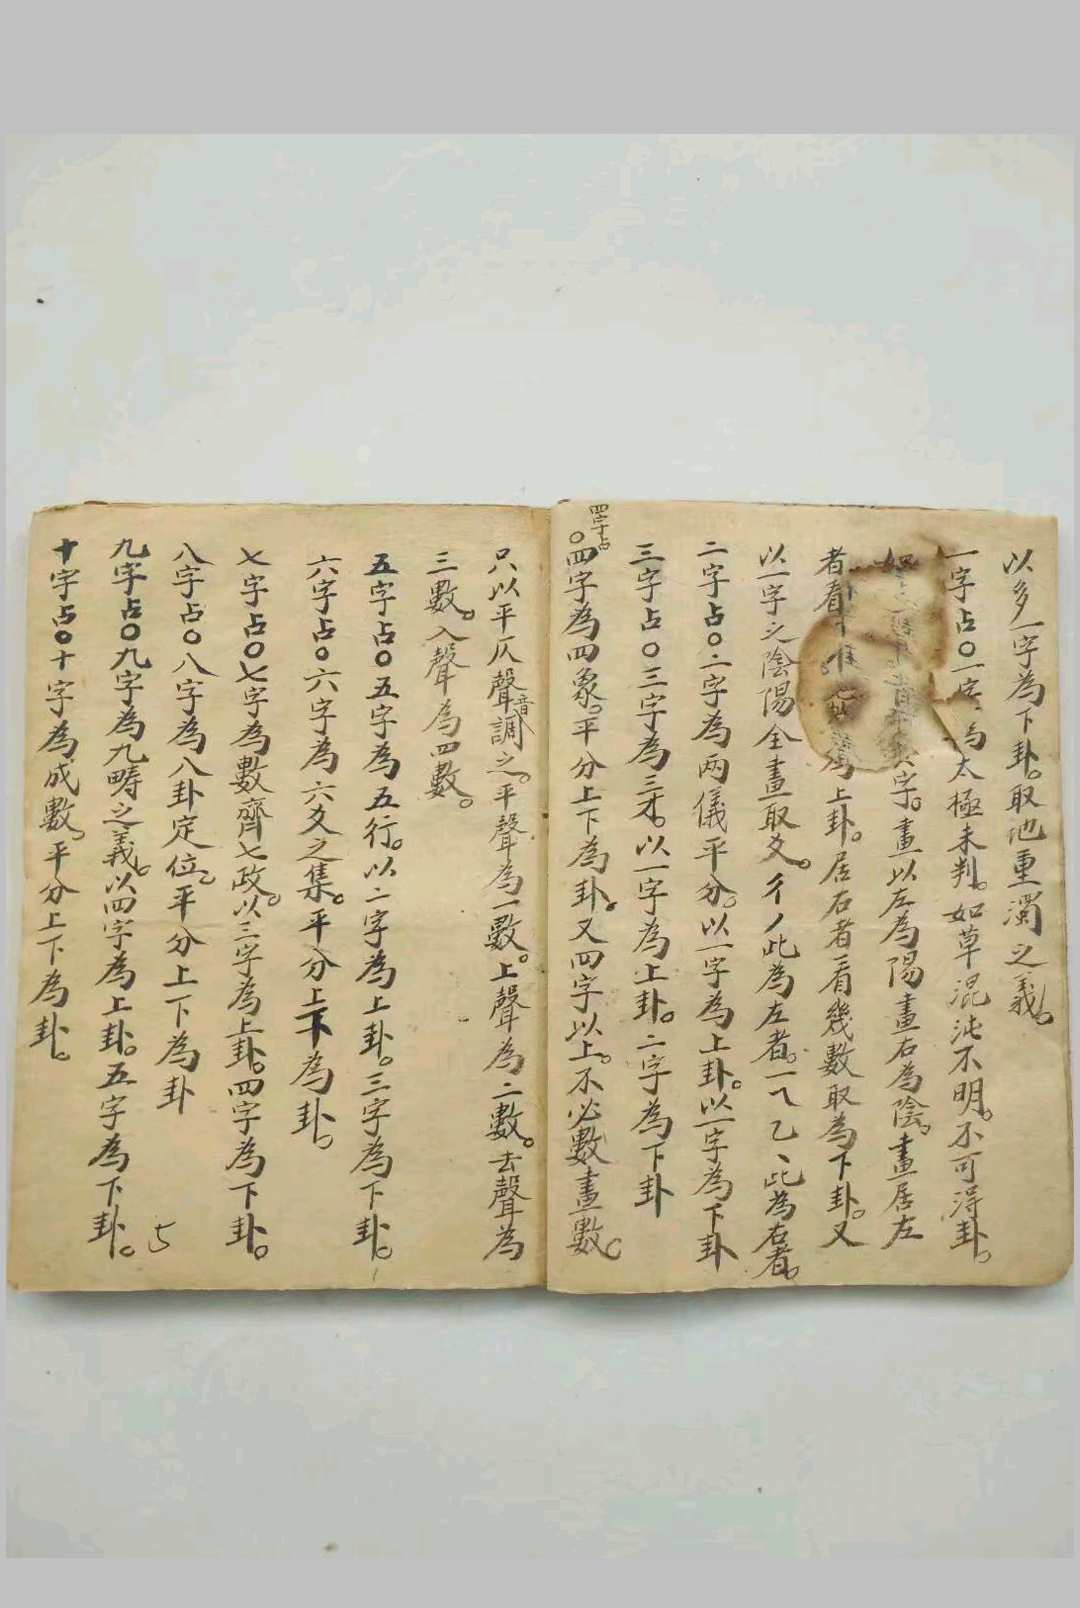 以多一字為下卦。取地重濁之義。
一字占〇一字為太極未判。如草混沌不明。不可得卦。
如字。畫以左為陽畫右為陰。畫居左
者看為上卦。居右者看幾數取為下卦。又
以一字之陰陽全畫取爻。彳丿此為左者。一乁乙丶此為右者。
二字占〇二字為兩儀平分。以一字為上卦。以一字為下卦
三字占〇三字為三才。以一字為上卦。二字為下卦
四字占。
〇四字為四象。平分上下為卦。又四字以上。不必數畫數。
只以平仄聲音調之。平聲為一數。上聲為二數。去聲為
三數。入聲為四數。
五字占〇五字為五行。以二字為上卦。三字為下卦。
六字占〇六字為六爻之集。平分上下為卦。
七字占〇七字為數齊七政。以三字為上卦。四字為下卦。
八字占〇八字為八卦定位。平分上下為卦
九字占〇九字為九疇之義。以四字為上卦。五字為下卦。
十字占〇十字為成數。平分上下為卦。
5